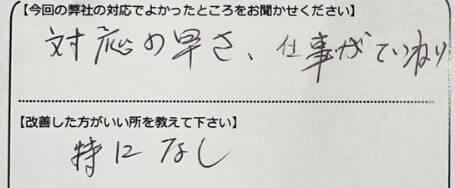 【今回の弊社の対応でよかったところをお聞かせください】
対応の早さ、仕事がていねい
【改善した方がいい所を教えて下さい】
特になし